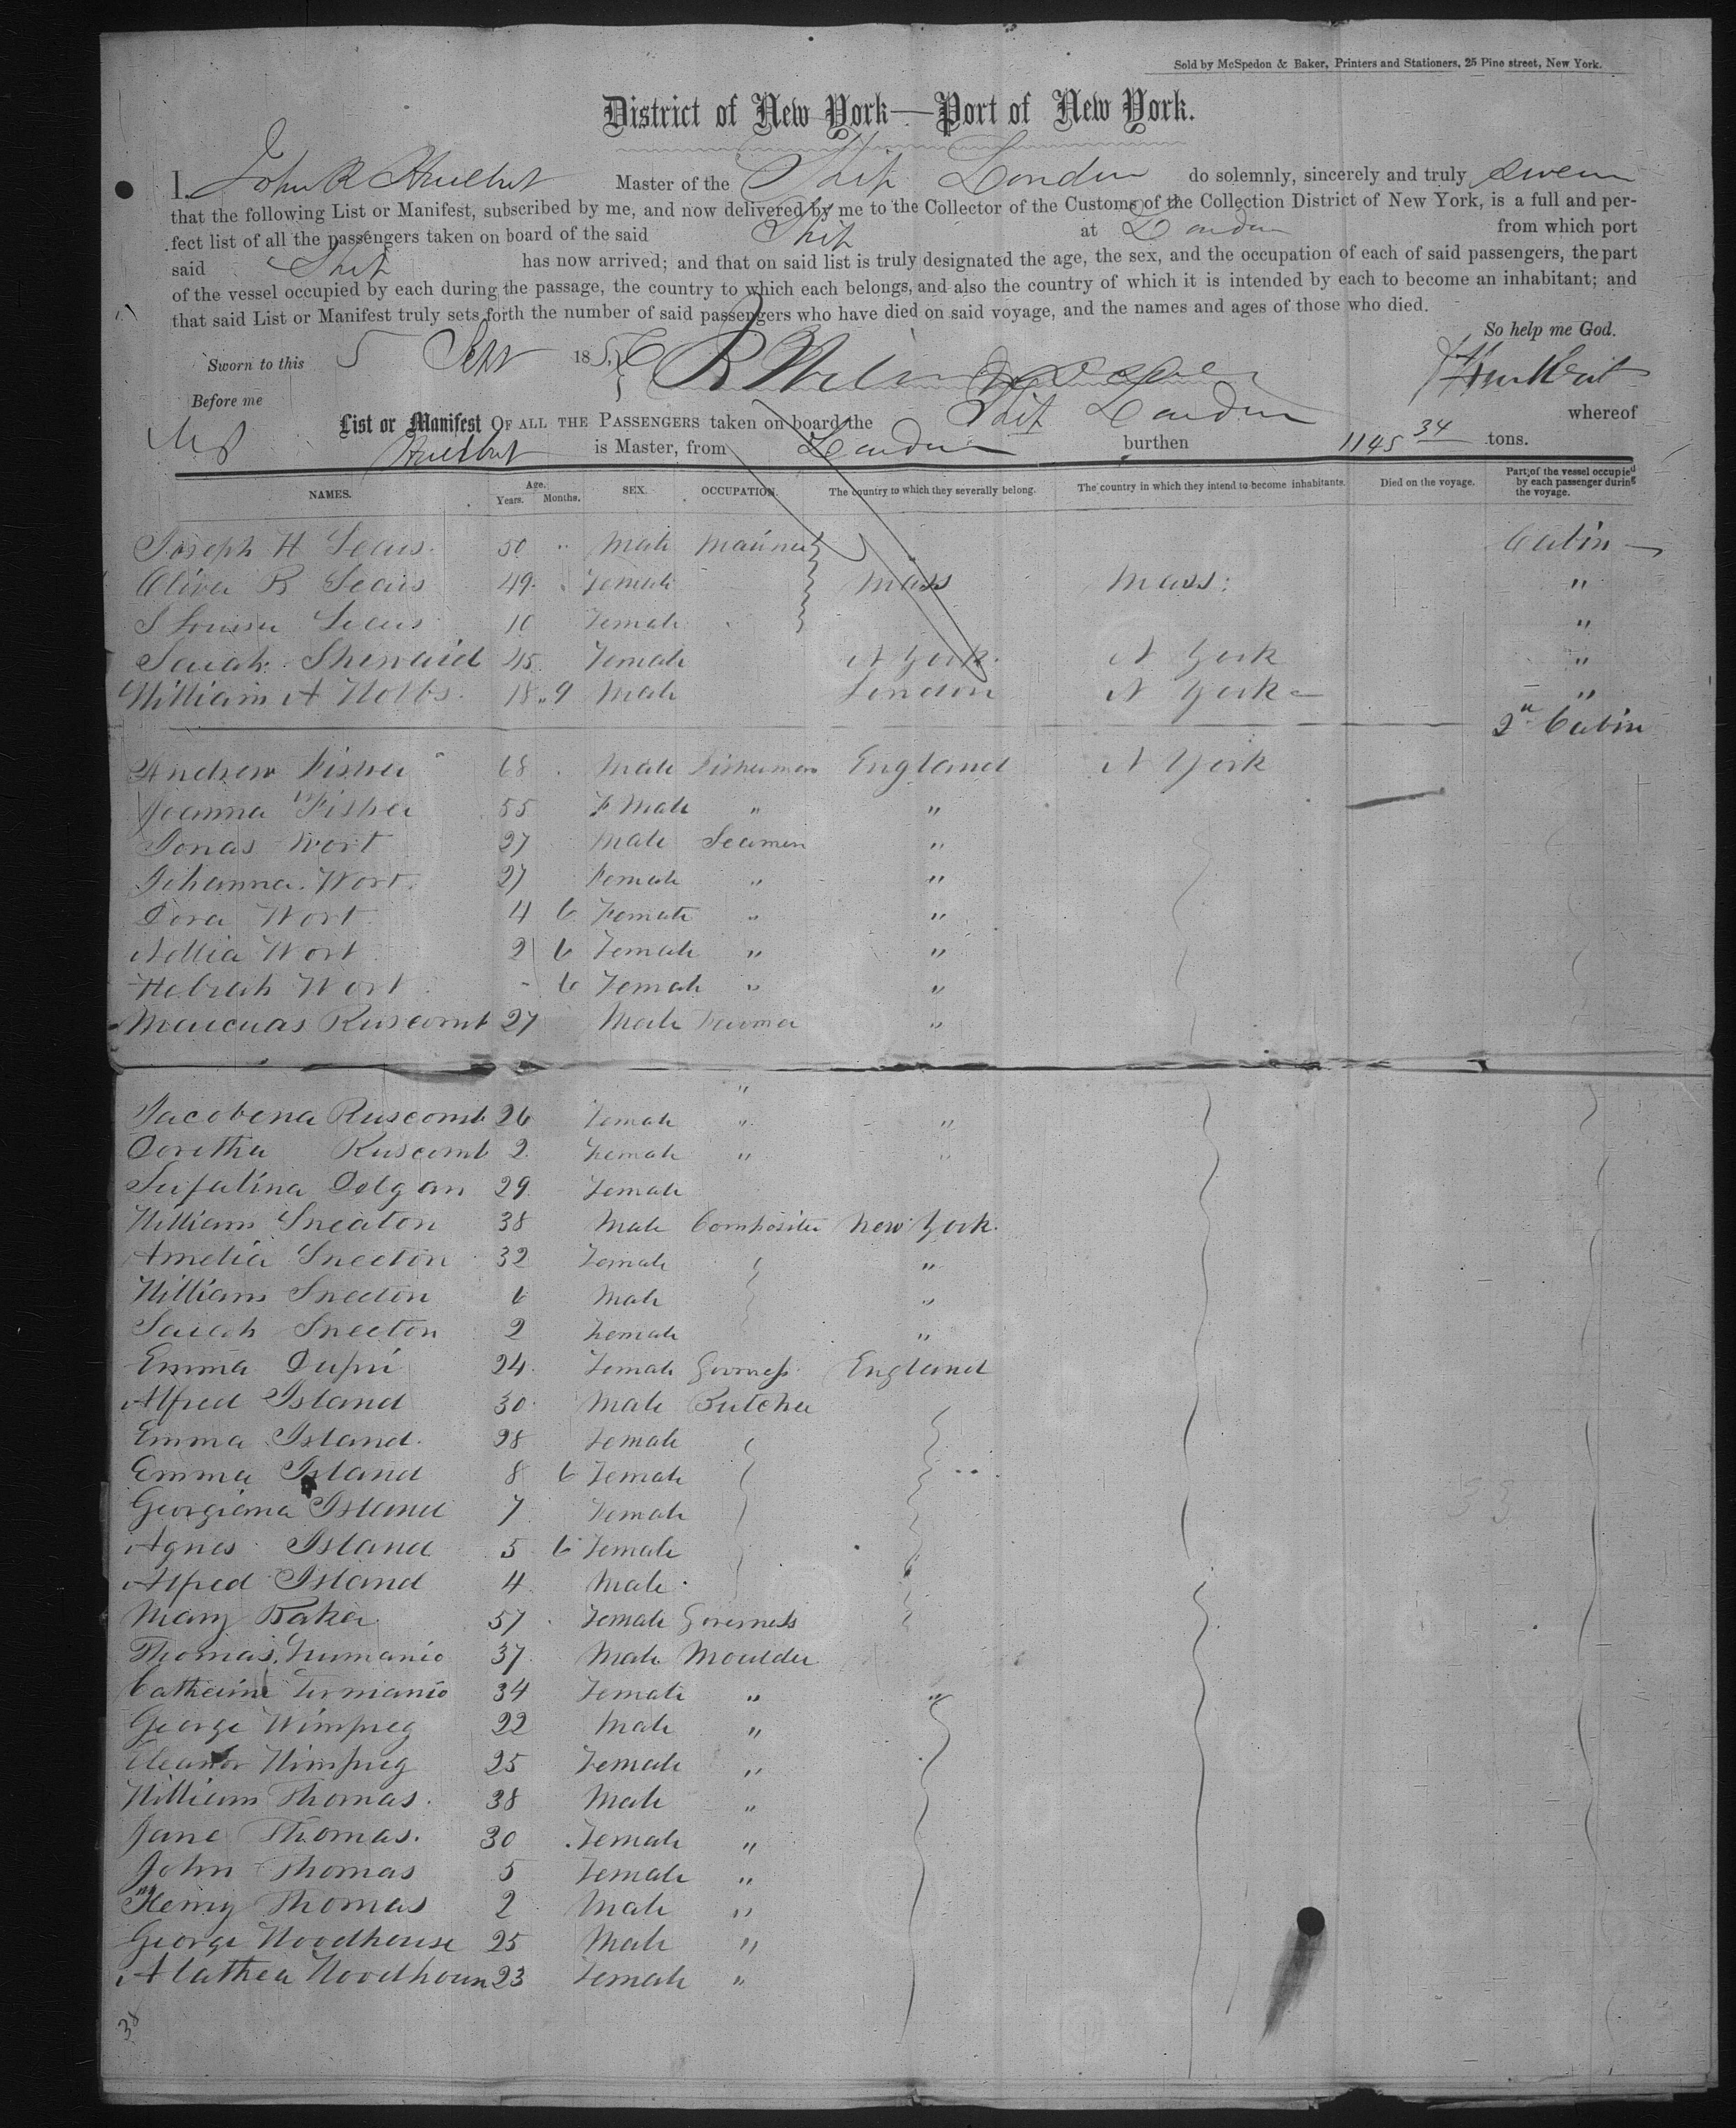 Sold by McSpedon & Baker, Printers and Stationers, 25 Pine street, New York.
District of New York—Port of New York.
I, John R Hurlbut Master of the Ship London do solemnly, sincerely and truly swear
that the following List or Manifest, subscribed by me, and now delivered by me to the Collector of the Customs of the Collection District of New York, is a full and per-
fect list of all the passengers taken on board of the said Ship at London from which port
said Ship has now arrived; and that on said list is truly designated the age, the sex, and the occupation of each of said passengers, the part
of the vessel occupied by each during the passage, the country to which each belongs, and also the country of which it is intended by each to become an inhabitant; and
that said List or Manifest truly sets forth the number of said passengers who have died on said voyage, and the names and ages of those who died.
So help me God.
Sworn to this 5 Sept 1856
Hurlbut
Before me
List or Manifest OF ALL THE PASSENGERS taken on board the Ship London whereof
Hurlbut is Master, from London burthen 1145 34 tons.
NAMES. Age. Years. Months. SEX. OCCUPATION. The country to which they severally belong. The country in which they intend to become inhabitants. Died on the voyage. Part of the vessel occupied by each passenger during the voyage.
Joseph H Sears 50 " Male Mariner Cabin
Oliva R Sears 49 Female Mass Mass: "
S Louisa Sears 10 Female "
Sarah Sherwaid 45 Female N York N York "
William A Nobbs 18 " 9 Male London N York "
2" Cabin
Andrew Fisher 68 Male Fisherman England N York
Joanna Fisher 55 F Male " "
Jonas Wort 27 Male Seaman "
Johanna Wort 27 Female " "
Dora Wort 4 6 Female " "
Nellia Wort 2 6 Female " "
Hebrah Wort - 6 Female " "
Maucuas Ruscomb 27 Male Farmer "
"
Jacobena Ruscomb 26 Female " "
Dorotha Ruscomb 2 Female " "
Sufalina Dolgan 29 Female
William Sneaton 38 Male Compositer New York
Amelia Sneeton 32 Female "
William Sneeton 6 Male "
Sarah Sneeton 2 Female "
Emma Dupri 24 Female Governess England
Alfred Island 30 Male Butcher
Emma Island 28 Female
Emma Island 8 6 Female
Georgiana Island 7 Female
Agnes Island 5 6 Female
Alfred Island 4 Male
Mary Baker 57 Female Governess
Thomas 37 Male Moulder
Catherine 34 Female " "
George Wimpreg 22 Male "
Eleanor Wimpreg 25 Female "
William Thomas 38 Male "
Jane Thomas 30 Female "
John Thomas 5 Female "
Henry Thomas 2 Male "
George Woodhouse 25 Male "
Alathea Woodhouse 23 Female "
38